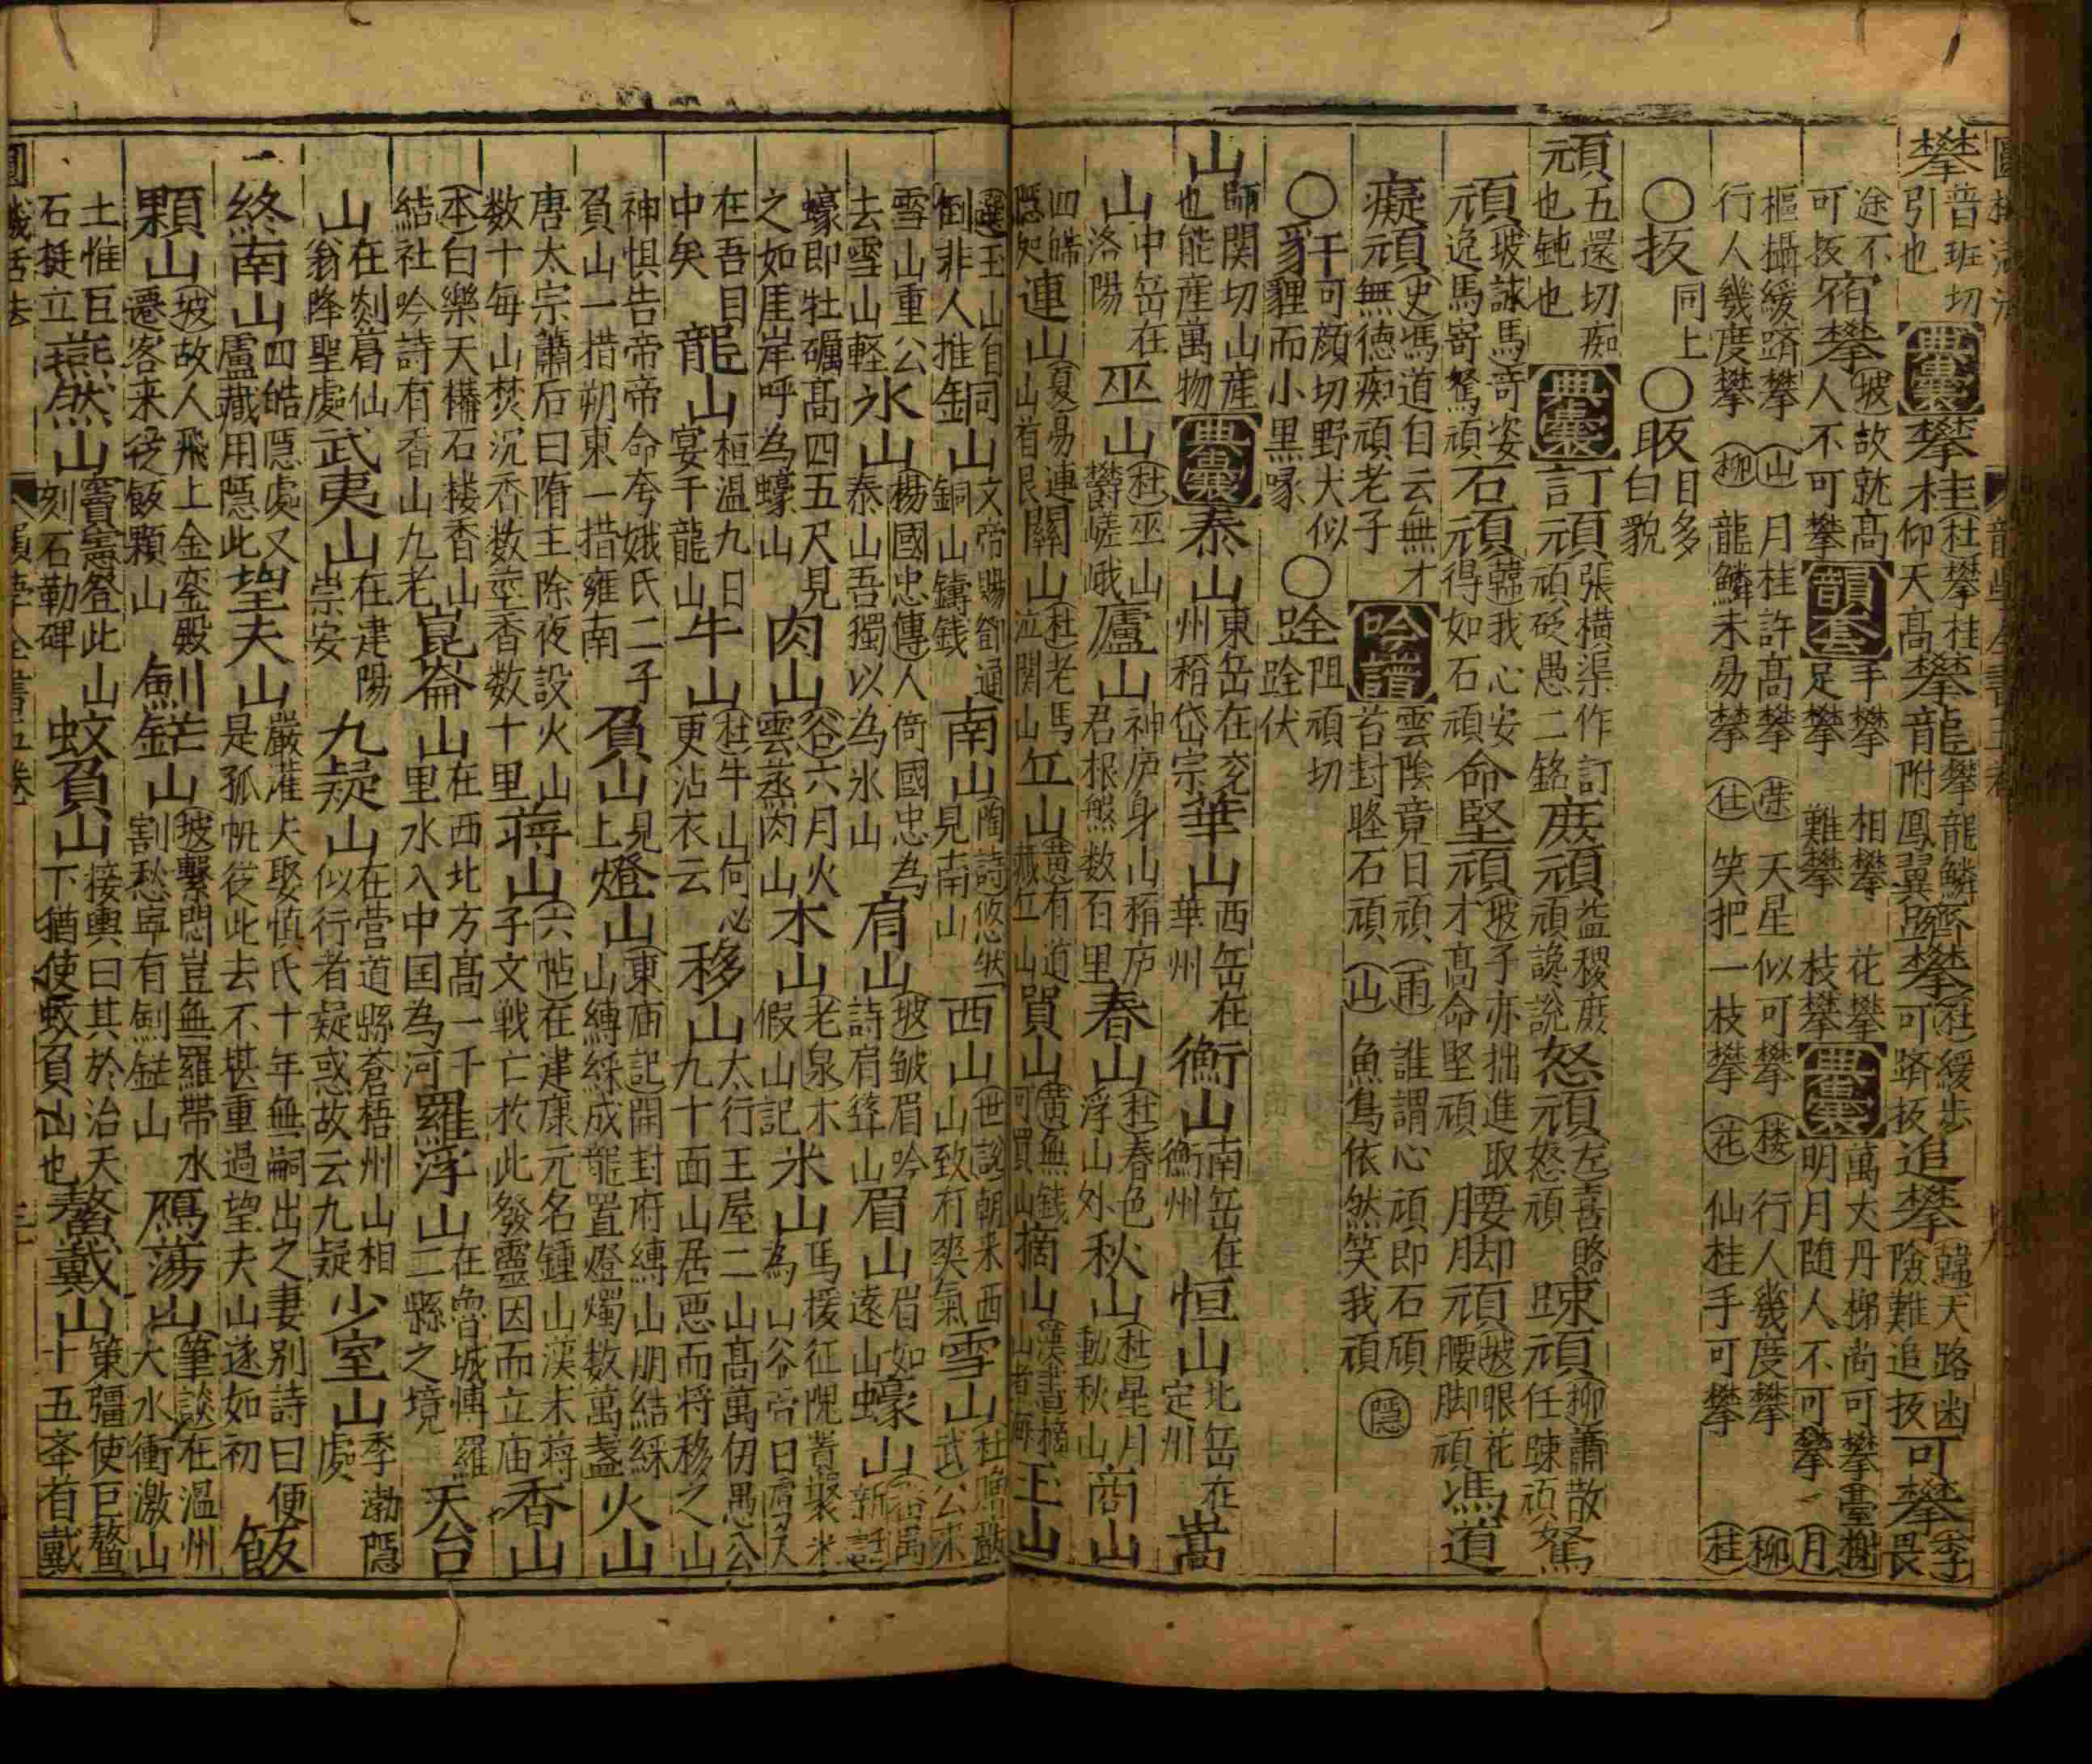 攀普班切引也典囊攀桂杜攀桂仰天高攀龍攀龍鱗附鳳翼躋攀杜緩步可躋扳追攀韓天路幽險難追扳可攀李畏
途不可扳宿攀坡故就高人不可攀韻套手攀足攀相攀難攀花攀枝攀典囊萬丈丹梯尚可攀臺榭明月随人不可攀月
樞攝緩躋攀山月桂許高攀榮天星似可攀楼行人幾度攀柳
行人幾度攀柳龍鱗未易攀仕笑把一枝攀花仙桂手可攀桂
○扳同上○眅目多白貌
頑五還切痴也鈍也典囊訂頑張橫渠作訂頑砭愚二銘庶頑益稷庶頑讒說怒頑左喜賂怒頑踈頑柳蕭散任踈頑駑
頑坡詠馬奇姿逸馬寄駑頑石頑韓我心安得如石頑命堅頑坡子亦拙進取才高命堅頑腰脚頑坡眼花腰脚頑馮道
癡頑史馮道自云無才無德痴頑老子吟譜雲陰竟日頑雨誰謂心頑即石頑隱苔封怪石頑山魚鳥依然笑我頑
○豻可顔切野犬似貍而小黑喙○跧阻頑切跧伏
山師関切山産也能産萬物典囊泰山東岳在兖州稱岱宗華山西岳在華州衡山南岳在衡州恒山北岳在定州嵩
山中岳在洛陽巫山杜巫山欝嵯峨廬山神庐身山稱庐君根熊数百里春山杜春色浮山外秋山杜星月動秋山商山
四皓隱処連山夏易連山首艮關山杜老馬泣関山丘山黄有道藏丘山買山黄無錢可買山摘山漢書摘山煮海玉山
選玉山自倒非人推銅山文帝賜鄧通銅山鑄錢南山陶詩悠然見南山西山世說朝来西山致有爽氣雪山杜贈嚴武公来
雪山重公去雪山軽氷山楊國忠傳人倚國忠為泰山吾獨以為氷山肩山坡皱眉吟詩肩聳山眉山眉如遠山蠔山新話
蠔即牡礪高四五尺見之如厓岸呼為蠔山肉山谷六月火雲蒸肉山木山老泉木假山記米山馬援征隗嚣聚米為山谷帝曰虜
在吾目中矣龍山桓温九日宴于龍山牛山杜牛山何必更沾衣云移山太行王屋二山高萬仞愚公九十面山居惡而将移之山
神惧告帝帝命夸娥氏二子負山一措朔東一措雍南負山見上燈山東庙記開封府縛山朋結綵山縛綵成龍置燈燭数萬盞火山
唐太宗蕭后曰隋主除夜設火山数十每山焚沉香数車香数十里蒋山六帖在建康元名鍾山漢末蒋子文戦亡於此發靈因而立庙香山
本白樂天構石楼香山結社吟詩有香山九老崑崙山在西北方高一千里水入中国為河羅浮山在魯城博羅二縣之境天台
山在剡葛仙翁降聖處武夷山在建陽崇安九疑山在营道縣蒼梧州山相似行者疑惑故云九疑少室山季渤隱處
終南山四皓隱處又盧藏用隱此望夫山嚴淮夫娶慎氏十年無嗣出之妻别詩曰便是孤帆從此去不堪重過望夫山遂如初飯
顆山坡故人飛上金銮殿遷客来從飯顆山劍鋩山坡繫悶豈無羅帶水割愁寧有劍鋩山鴈荡山筆談在温州大水衝激山
土惟巨石挺立燕然山竇憲登此山刻石勒碑蚊負山接輿曰其於治天下猶使蚊負山也鰲戴山策彊使巨鰲十五夆首戴